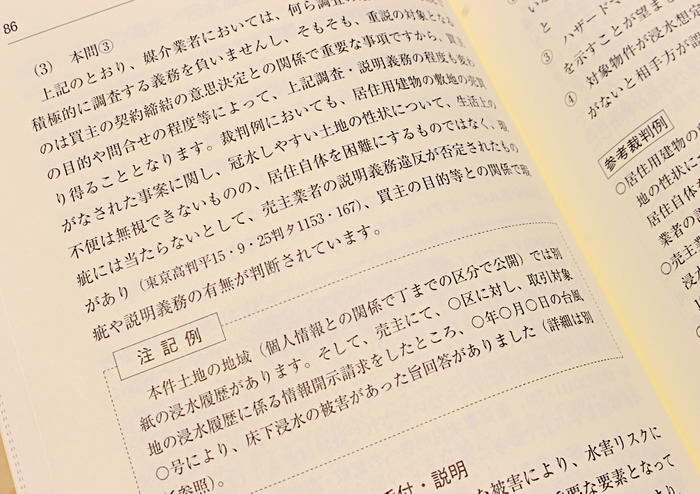 86
(3) 本問③
上記のとおり、媒介業者においては、何ら調査の
積極的に調査する義務を負いませんし、そもそも、重説の対象となる
のは買主の契約締結の意思決定との関係で重要な事項ですから、買主
の目的や問合せの程度等によって、上記調査・説明義務の程度も変わ
り得ることとなります。裁判例においても、居住用建物の敷地の売買
がなされた事案に関し、冠水しやすい土地の性状について、生活上の
不便は無視できないものの、居住自体を困難にするものではなく、瑕
疵には当たらないとして、売主業者の説明義務違反が否定されたもの
があり（東京高判平15・9・25判タ1153・167）、買主の目的等との関係で瑕
疵や説明義務の有無が判断されています。
注記例
本件土地の地域（個人情報との関係で丁までの区分で公開）では別
紙の浸水履歴があります。そして、売主にて、○区に対し、取引対象
地の浸水履歴に係る情報開示請求をしたところ、○年○月○日の台風
○号により、床下浸水の被害があった旨回答がありました（詳細は別
参照）。
付・説明
な被害により、水害リスクに
要な要素となって
ハザードマ
と
を示すことが望ま
③
対象物件が浸水想定
④
がないと相手方が誤
参考裁判例
○居住用建物の
地の性状に
居住自体
業者の説
○売主業
浸